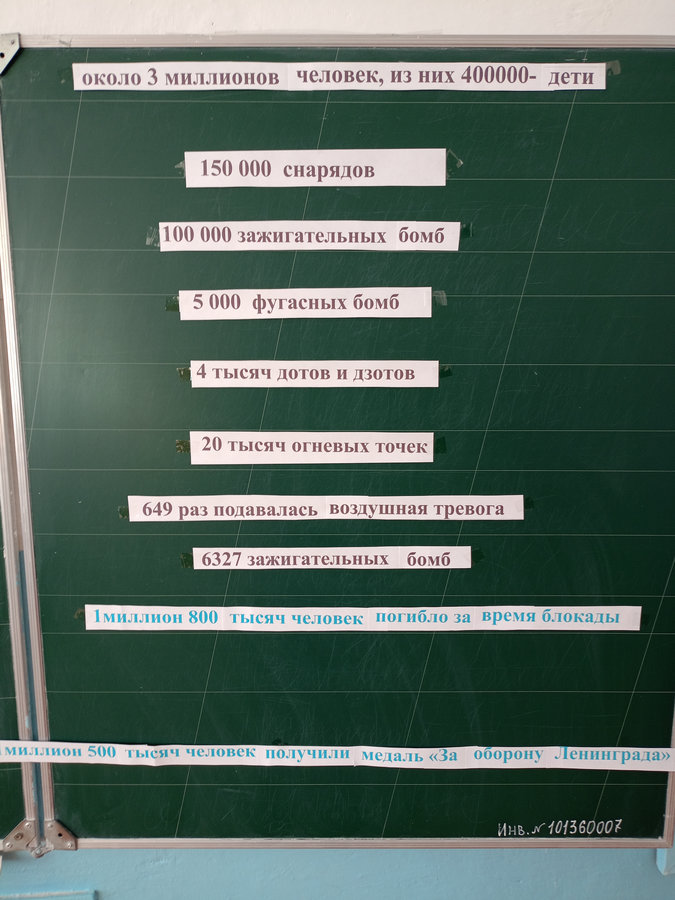 около 3 миллионов человек, из них 400000- дети
150 000 снарядов
100 000 зажигательных бомб
5 000 фугасных бомб
4 тысяч дотов и дзотов
20 тысяч огневых точек
649 раз подавалась воздушная тревога
6327 зажигательных бомб
1миллион 800 тысяч человек погибло за время блокады
1миллион 500 тысяч человек получили медаль «За оборону Ленинграда»
Инв. № 101360007